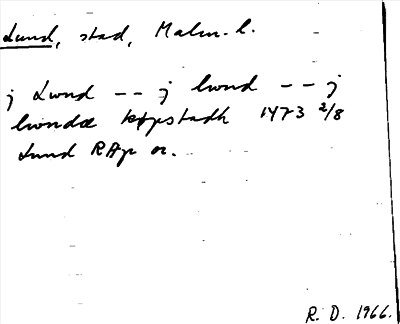 Lund, stad, Malm. l.
j Lwnd -- j lwnd -- j
lwndæ køpstadh 1473 2/8
Lund RAp or.
R. D. 1966.